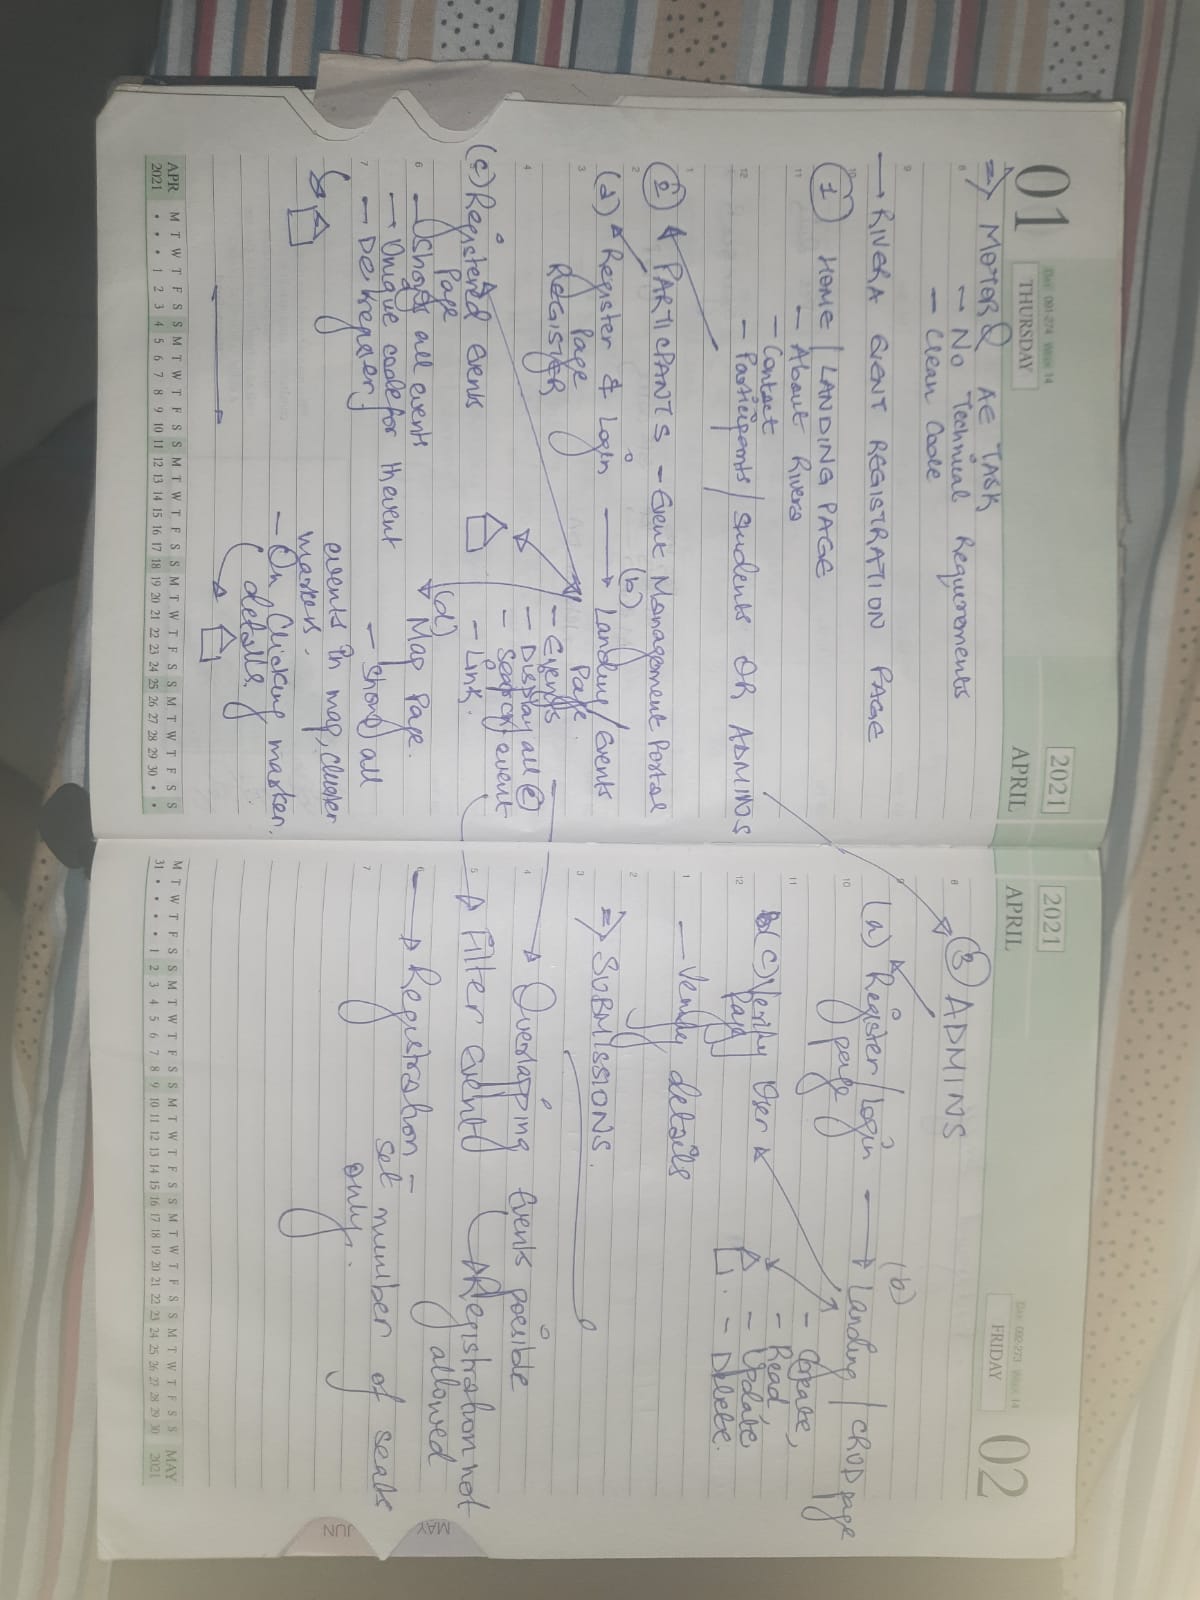 01
DAY 091-274 WEEK 14
THURSDAY
2021
APRIL
⇒ MOTORQ AE TASK
- No Technical Requirements
- Clean Code
→ RIVERA EVENT REGISTRATION PAGE
① HOME / LANDING PAGE
- About Rivera
- Contact
- Participants / Students OR ADMINS
② PARTICIPANTS - Event Management Portal
(a) Register & Login Page
REGISTER
(b) Landing / Events Page
- Events
- Display all (e)
- Search event
- Link.
(c) Registered Events Page
- Shows all events
- Unique code for the event
- De register
(d) Map Page.
- Show all
events in map, cluster
markers.
- On Clicking marker.
details.
APR 2021
M T W T F S S M T W T F S S M T W T F S S M T W T F S S M T W T F S S
• • • 1 2 3 4 5 6 7 8 9 10 11 12 13 14 15 16 17 18 19 20 21 22 23 24 25 26 27 28 29 30 • •
2021
APRIL
DAY 092-273 WEEK 14
FRIDAY
02
③ ADMINS
(a) Register / Login page
(b) Landing / CRUD page
- Create,
- Read,
- Update
- Delete.
(c) Verify User Page
- Verify details
⇒ SUBMISSIONS.
→ Overlapping events possible
→ Registration not
allowed
→ Filter event
→ Registration -
set number of seats
only.
MAY
JUN
M T W T F S S M T W T F S S M T W T F S S M T W T F S S M T W T F S S
31 • • • • 1 2 3 4 5 6 7 8 9 10 11 12 13 14 15 16 17 18 19 20 21 22 23 24 25 26 27 28 29 30
MAY 2021